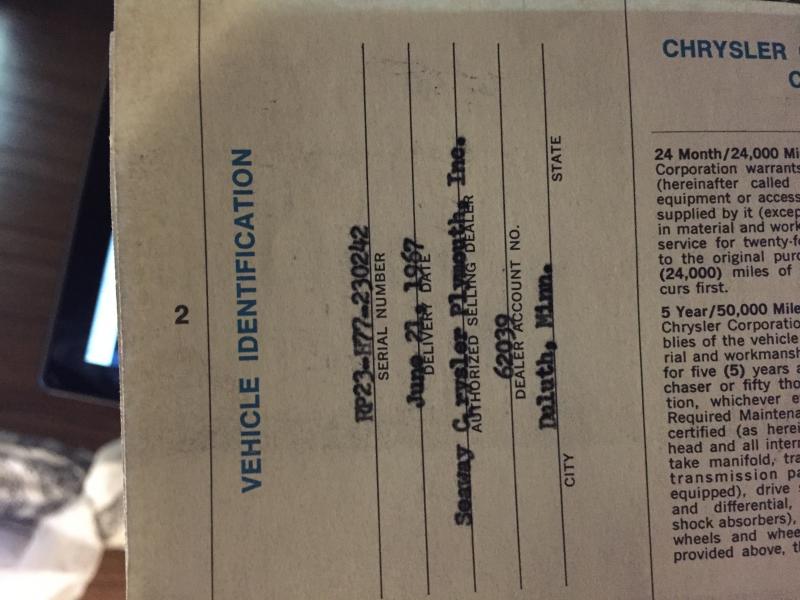 2
VEHICLE IDENTIFICATION
RP23-H77-230242
SERIAL NUMBER
June 21, 1967
DELIVERY DATE
Seaway C rysler Plymouth, Inc.
AUTHORIZED SELLING DEALER
62039
DEALER ACCOUNT NO.
Duluth, Minn.
CITY STATE
CHRYSLER
C
24 Month/24,000 Mi
Corporation warrants
(hereinafter called
equipment or access
supplied by it (excep
in material and work
service for twenty-fo
to the original purc
(24,000) miles of
curs first.
5 Year/50,000 Mile
Chrysler Corporatio
blies of the vehicle
rial and workmansh
for five (5) years a
chaser or fifty tho
tion, whichever e
Required Maintena
certified (as herei
head and all intern
take manifold, tra
transmission pa
equipped), drive s
and differential,
shock absorbers),
wheels and whee
provided above, th